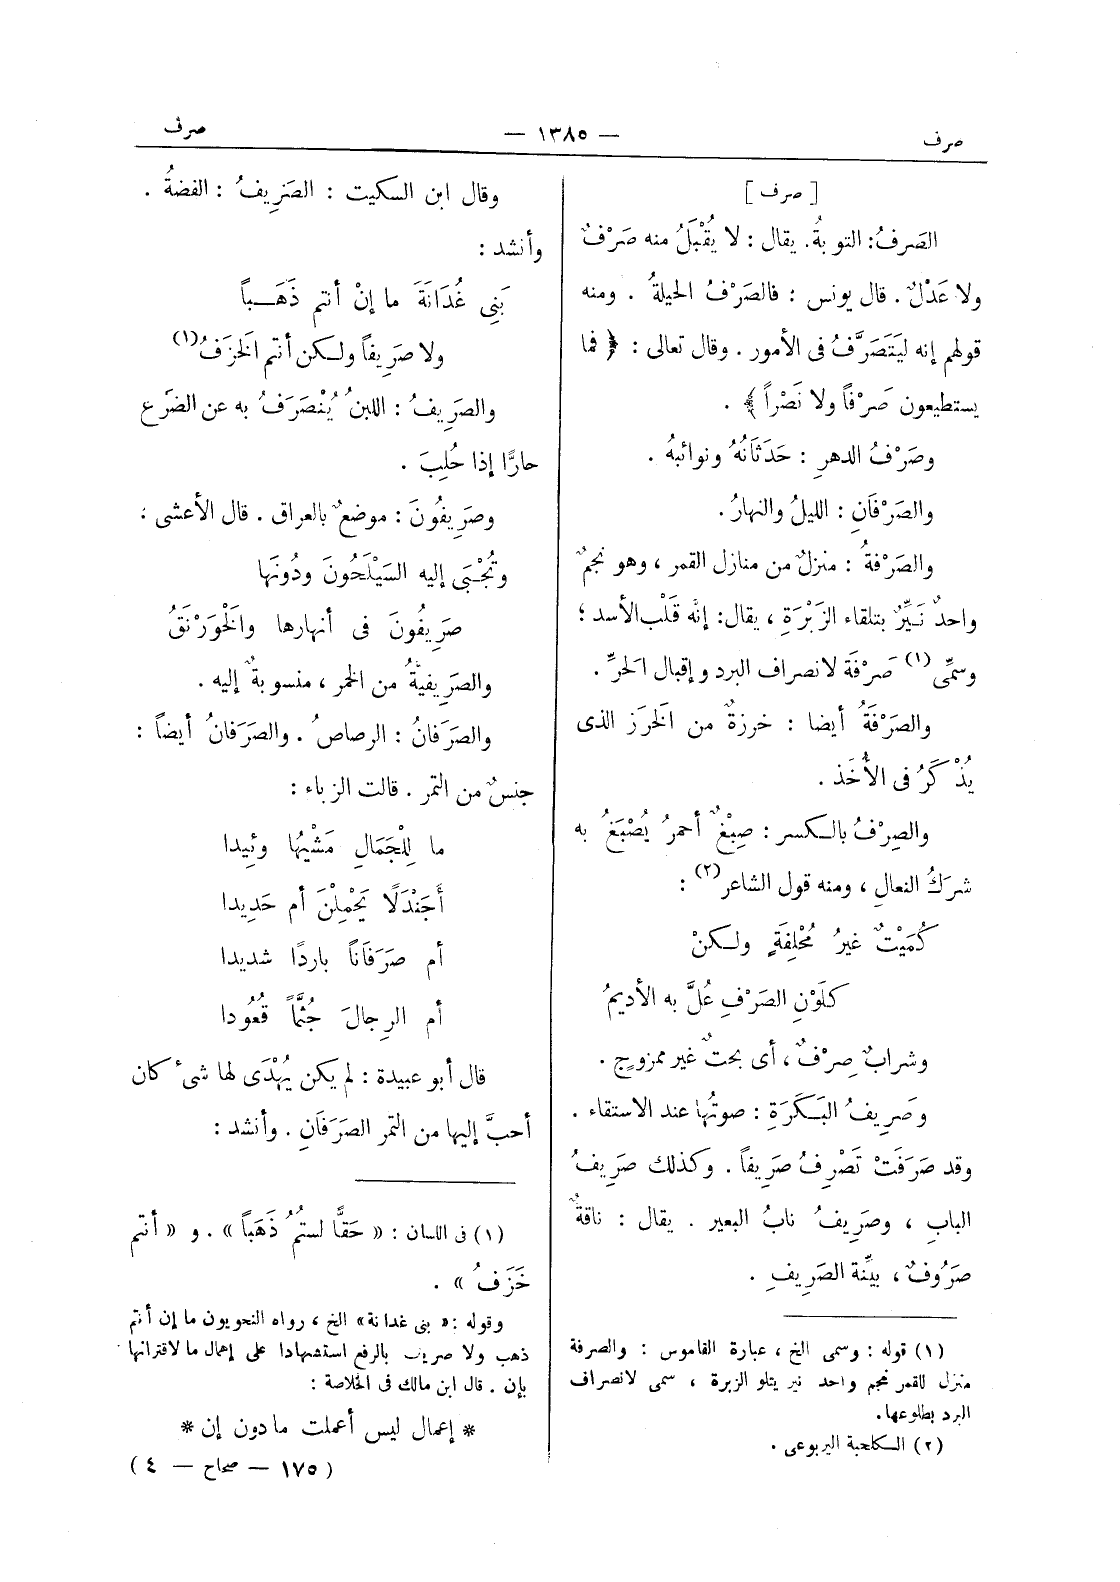 صرف
— ١٣٨٥ —
صرف
[ صرف ]
الصَرفُ: التوبةُ. يقال : لا يُقْبَلُ منه صَرْفٌ
ولا عَدْلٌ . قال يونس : فالصَرْفُ الحيلةُ . ومنه
قولهم إنه ليَتَصَرَّفُ فى الأمور . وقال تعالى : ﴿ فما
يستطيعون صَرْفاً ولا نَصْراً ﴾ .
وصَرْفُ الدهرِ : حَدَثَانُهُ ونوائبهُ .
والصَرْفَانِ : الليلُ والنهارُ .
والصَرْفَةُ : منزلٌ من منازل القمر ، وهو نجمٌ
واحدٌ نَيِّرٌ بتلقاء الزَبْرَةِ ، يقال: إنّه قَلْب الأسد ؛
وسمِّى (١) صَرْفَة لانصراف البرد وإقبال الحرِّ .
والصَرْفَةُ أيضا : خرزةٌ من الخَرَز الذى
يُذْكَرُ فى الأُخَذ .
والصِرْفُ بالكسر : صِبْغٌ أحمرُ يُصْبَغُ به
شركُ النعالِ ، ومنه قول الشاعر (٢) :
كُمَيْتٌ غيرُ مُحْلِفَةٍ ولكنْ
كلَوْنِ الصِرْفِ عُلَّ به الأديمُ
وشرابٌ صِرْفٌ ، أى بحتٌ غير ممزوجٍ .
وصَرِيفُ البَكَرَةِ : صوتُها عند الاستقاء .
وقد صَرَفَتْ تَصْرِفُ صَرِيفاً . وكذلك صَرِيفُ
البابِ ، وصَرِيفُ نابُ البعير . يقال : ناقةٌ
صَرُوفٌ ، بيِّنة الصَرِيفِ .
(١) قوله : وسمى الخ ، عبارة القاموس : والصرفة
منزل للقمر نجم واحد نير يتلو الزبرة ، سمى لانصراف
البرد بطلوعها.
(٢) الكلحبة اليربوعى .
وقال ابن السكيت : الصَرِيفُ : الفضةُ .
وأنشد :
بَنِى غُدَانَةَ ما إنْ أنتم ذَهَباً
ولا صَرِيفاً ولكن أنتم الخَزَفُ (١)
والصَرِيفُ : اللبنُ يُنْصَرَفُ به عن الضَرع
حارًّا إذا حُلِبَ .
وصَرِيفُونَ : موضعٌ بالعراق . قال الأعشى :
وتُجْبَى إليه السَيْلَحُونَ ودُونَها
صَرِيفُونَ فى أنهارها والخَوَرْنَقُ
والصَرِيفيةُ من الخمر ، منسوبةٌ إليه .
والصَرَفانُ : الرصاصُ . والصَرَفانُ أيضاً :
جنسٌ من التمر . قالت الزباء :
ما لِلْجَمَالِ مَشْيُها وئِيدا
أَجَنْدَلًا يَحْمِلْنَ أم حَدِيدا
أم صَرَفَاناً باردًا شديدا
أم الرِجالَ جُثَّماً قُعُودا
قال أبو عبيدة : لم يكن يُهْدَى لها شىء كان
أحبَّ إليها من التمر الصَرَفَانِ . وأنشد :
(١) فى اللسان : « حَقًّا لستُمُ ذَهَباً » . و « أنتم
خَزَفُ » .
وقوله : « بنى غدانة » الخ ، رواه النحويون ما إن أنتم
ذهب ولا صريف بالرفع استشهادا على إهمال ما لاقترانها
بإن . قال ابن مالك فى الخلاصة :
* إعمال ليس أعملت ما دون إن *
( ١٧٥ — صحاح — ٤ )